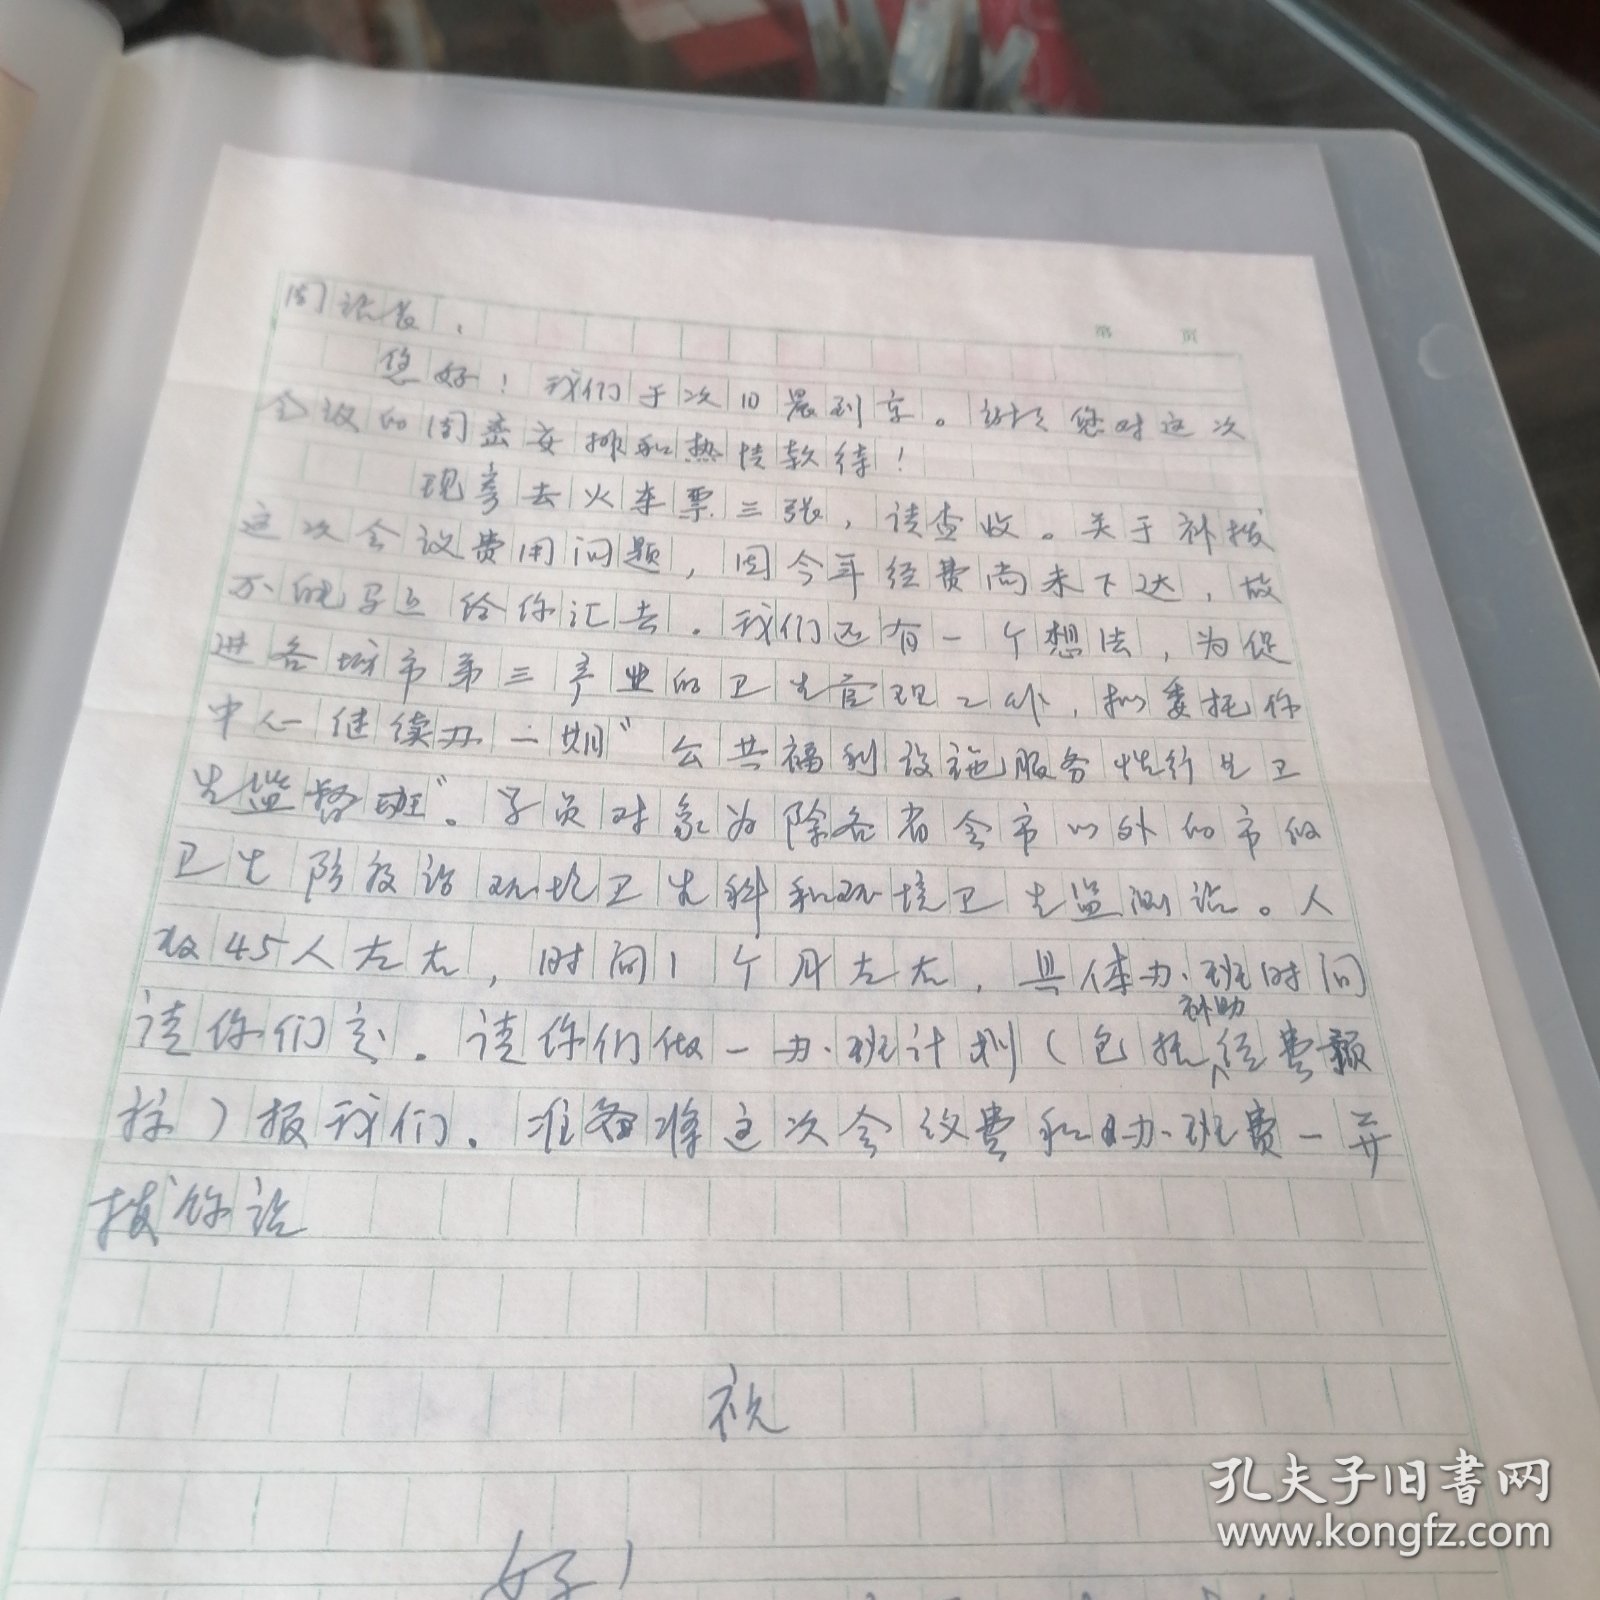 第 页
周站长、
您好！我们于次日晨到京。谢谢您对这次
会议的周密安排和热情款待！
现寄去火车票三张，请查收。关于补拨
这次会议费用问题，因今年经费尚未下达，故
不能马上给你汇去。我们还有一个想法，为促
进各城市第三产业的卫生管理工作，拟委托你
中心继续办一期“公共福利设施服务性行业卫
生监督班”。学员对象为除各省会市以外的市级
卫生防疫站环境卫生科和环境卫生监测站。人
数45人左右，时间1个月左右，具体办班时间
请你们定。请你们做一办班计划（包括补助经费额
）报我们。准备将这次会议费和办班费一并
拨你站
祝
好！
孔夫子旧书网
www.kongfz.com